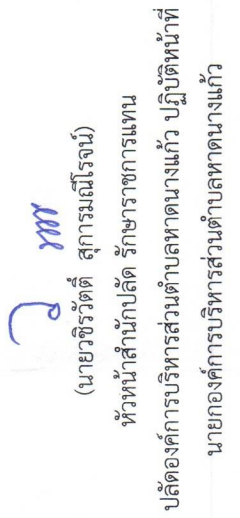 (นายวชิรวัตติ์ สุการมณีโรจน์)
หัวหน้าสำนักปลัด รักษาราชการแทน
ปลัดองค์การบริหารส่วนตำบลหาดนางแก้ว ปฏิบัติหน้าที่
นายกองค์การบริหารส่วนตำบลหาดนางแก้ว